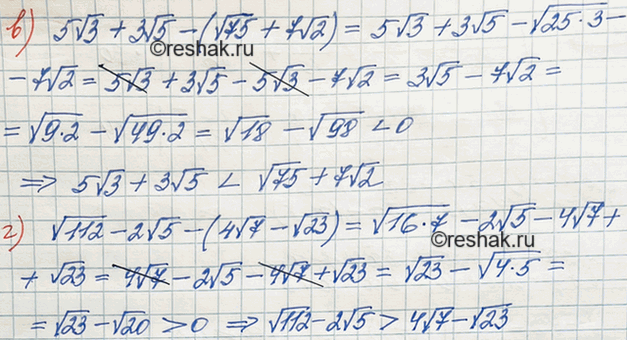 в) 5√3 + 3√5 - (√75 + 7√2) = 5√3 + 3√5 - √25·3 -
©reshak.ru
- 7√2 = 5√3 + 3√5 - 5√3 - 7√2 = 3√5 - 7√2 =
= √9·2 - √49·2 = √18 - √98 < 0
⇒ 5√3 + 3√5 < √75 + 7√2
г) √112 - 2√5 - (4√7 - √23) = √16·7 - 2√5 - 4√7 +
©reshak.ru
+ √23 = 4√7 - 2√5 - 4√7 + √23 = √23 - √4·5 =
= √23 - √20 > 0 ⇒ √112 - 2√5 > 4√7 - √23